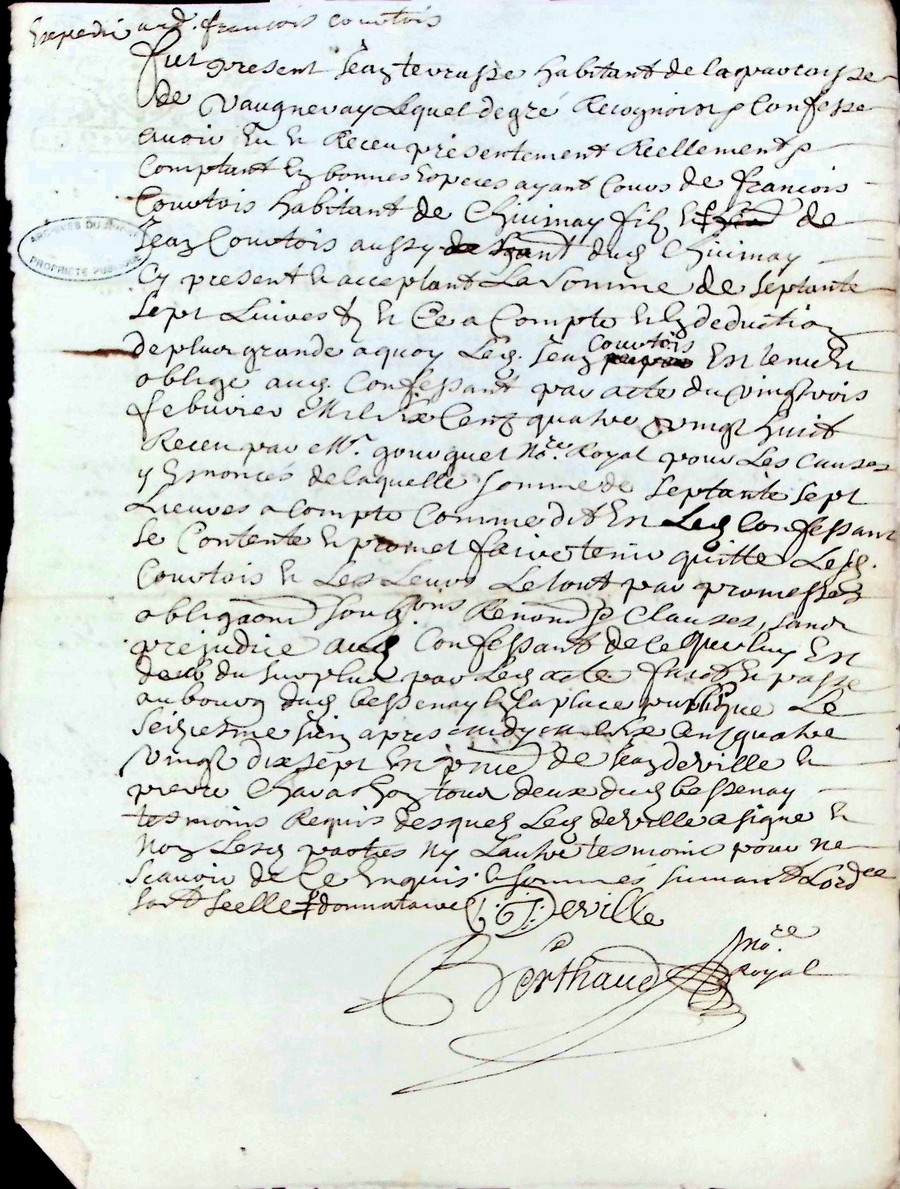 Expedié aud. francois courtois
fut present Jean terrasse habitant de la parroisse
de Vaugneray Lequel de gré Recognoist & Confesse
avoir Eu et Receu presentement Reellement &
Comptant En bonnes Especes ayant Cours de francois
Courtois habitant de Chivinay filz et de
Jean Courtois aussy dud Chivinay
Cy present et acceptant La Somme de Septante
Sept Livres & Ce a Compte et En deduction
de plus grande a quoy Led. Jean Courtois Est tenu et
obligé aud. Confessant par acte du vingt trois
febvrier Mil six Centz quatre vingt huict
Receu par Me. gouguet No.re Royal pour Les Causes
y Enoncés de laquelle Somme de Septante Sept
Livres a Compte Comme dit Est Led Confessant
Se Contente et promet faire tenir quitte Lesd.
Courtois et Les Leurs Le tout par promesses
obligaons soubzons Renonons & Clauses, sans
prejudice aud Confessant de ce quy luy Est
deub du Surplus par Led acte faict et passé
au bourg dud bessenay En la place publique Le
Seiziesme Juin apres midy mil six Cent quatre
Vingt dix sept En pnce de Jean deville et
pierre Chavachon tous deux dud bessenay
tesmoins Requis desquelz Led deville a signé et
Non Lesd parties Ny Lautre tesmoin pour ne
Scavoir de Ce Enquis et sommés Suivant Lord.ce
Sont Seellé donnataire
J. Deville
Berthaud No.re
Royal
ARCHIVES DU RHONE
PROPRIÉTÉ PUBLIQUE